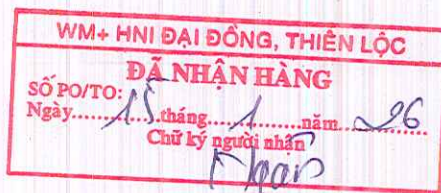 WM+ HNI ĐẠI ĐỒNG, THIÊN LỘC
ĐÃ NHẬN HÀNG
SỐ PO/TO:
Ngày.....15.tháng....1......năm....26
Chữ ký người nhận